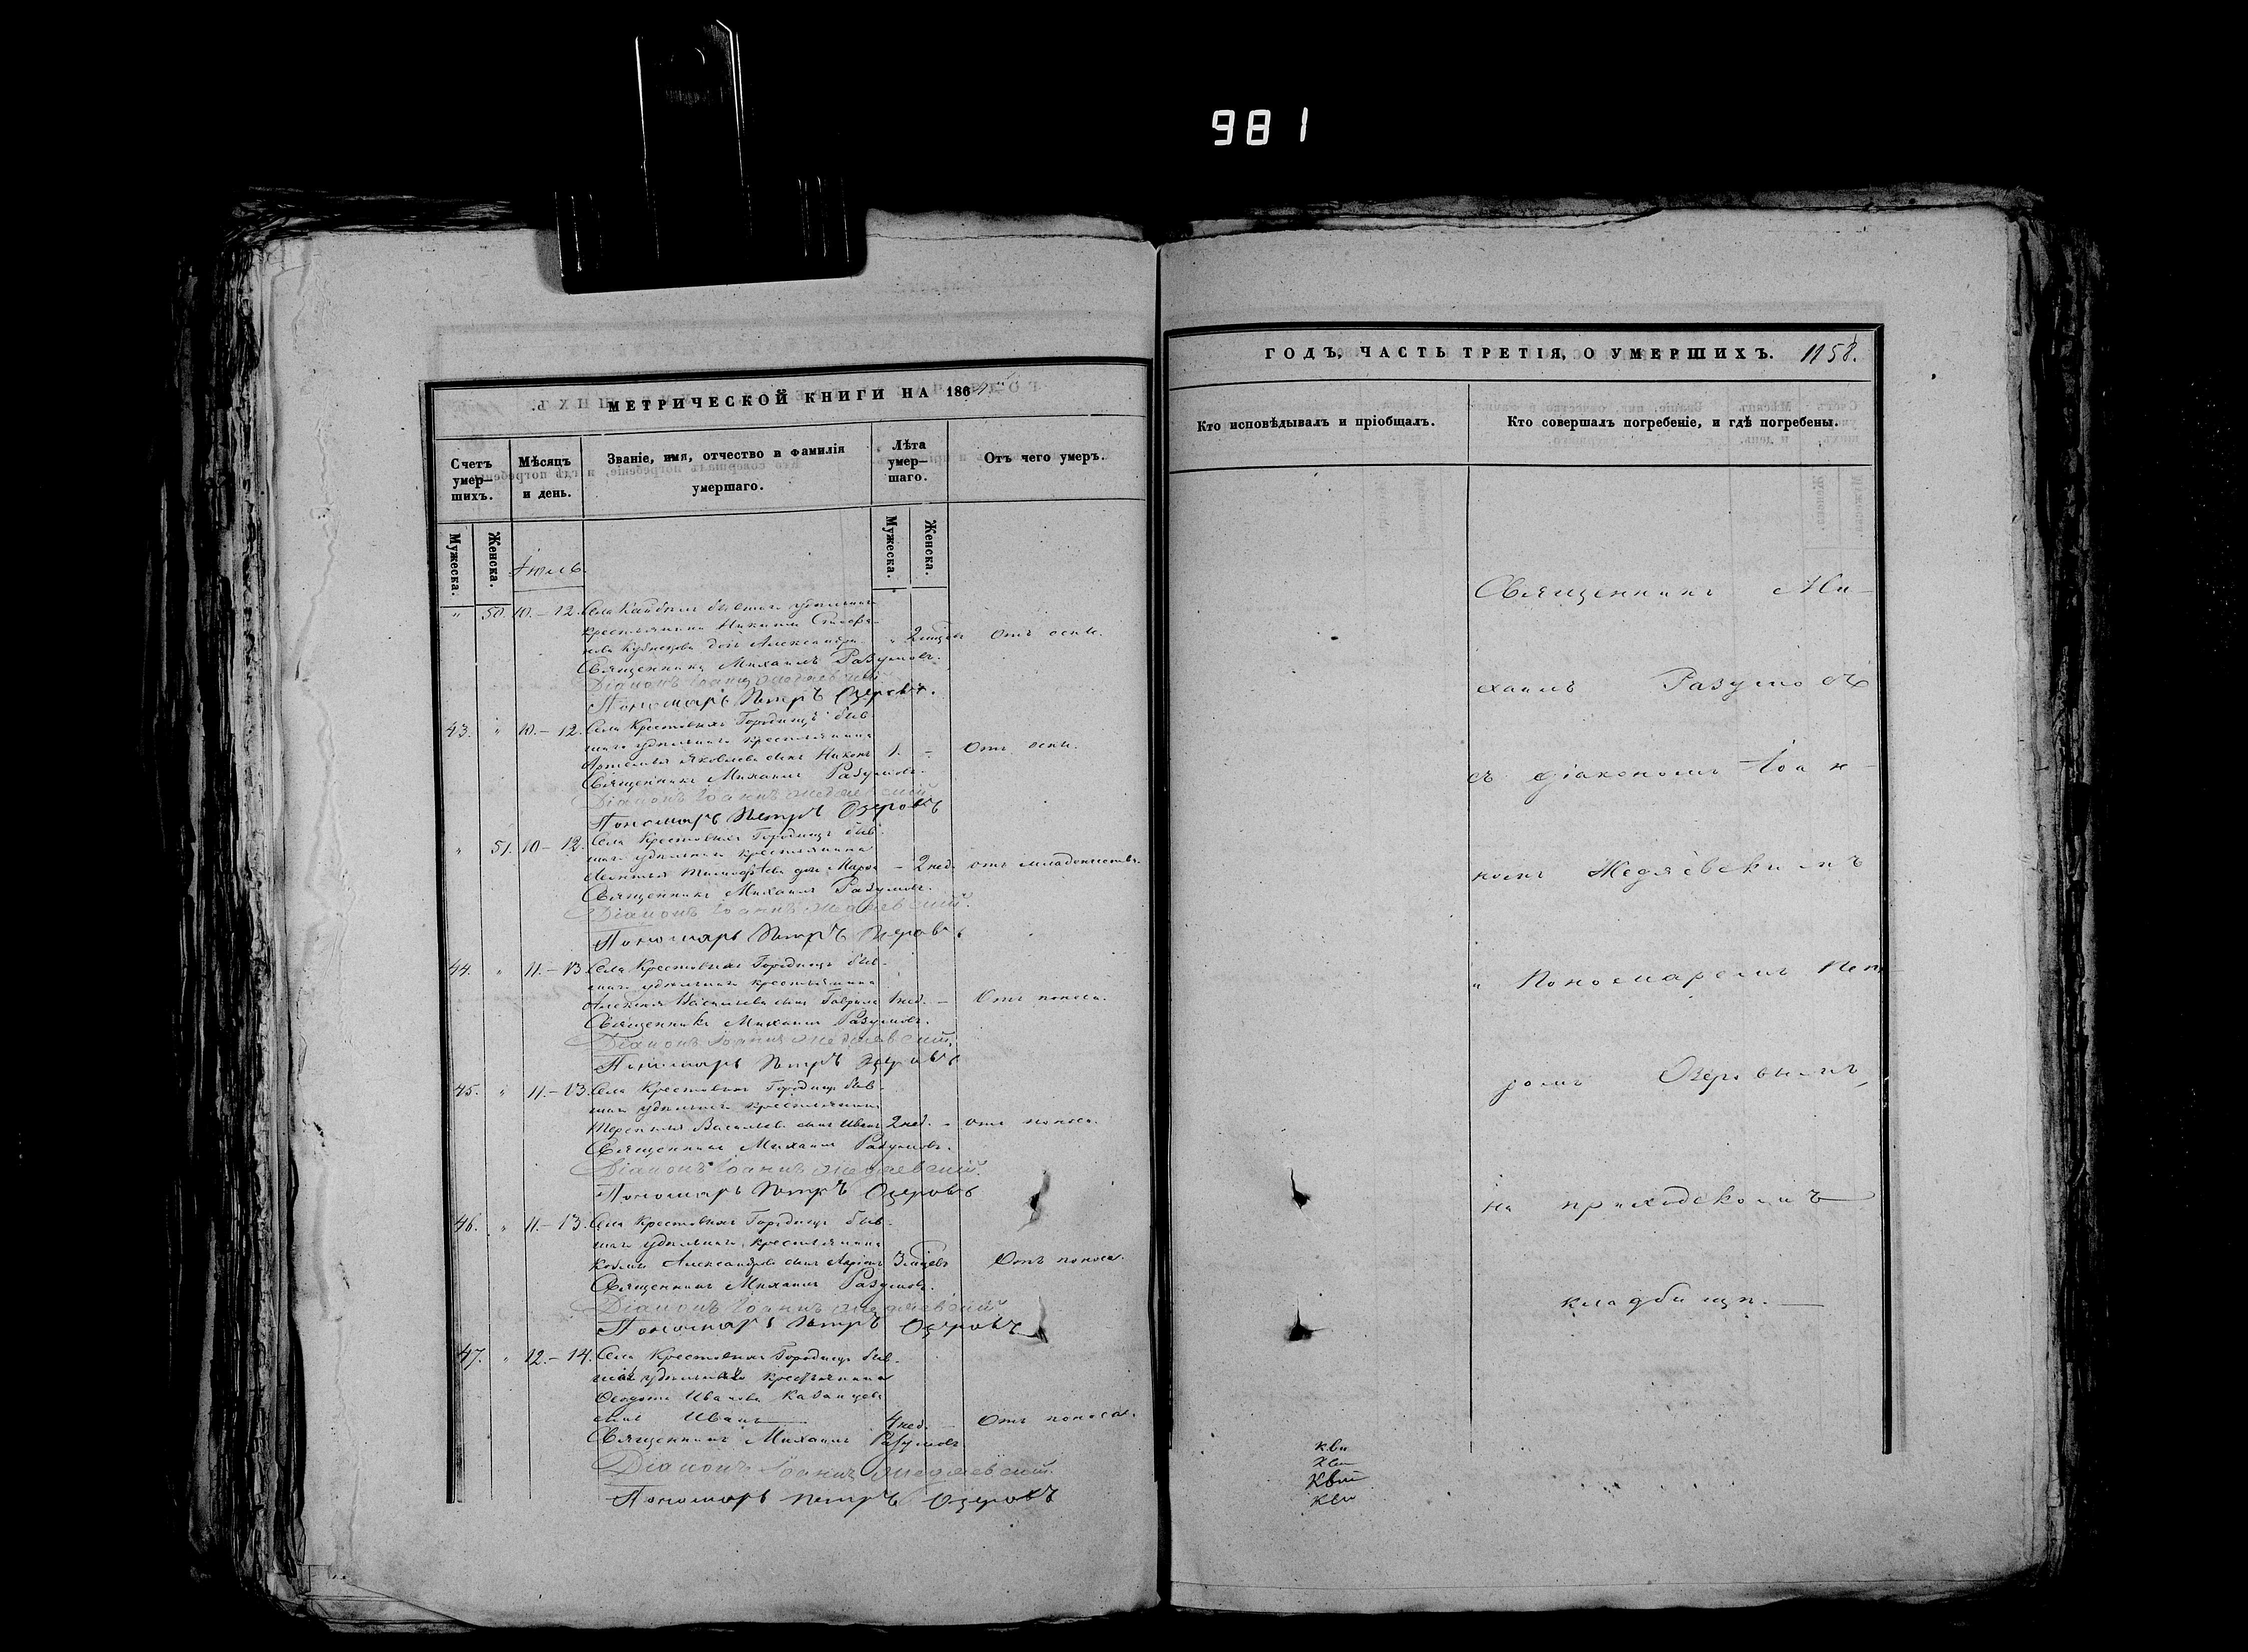 981
МЕТРИЧЕСКОЙ КНИГИ НА 186
Счетъ умер—шихъ.
Мѣсяцъ и день.
Званіе, имя, отчество и фамилія умершаго.
Лѣта умер—шаго.
Отъ чего умеръ.
Мужеска.
Женска.
Мужеска.
Женска.
Іюль.
" 50. 10.–12. Села бывшаго удѣльнаго
крестьянина Никиты
дочь Александра " 2 мѣсяц. Отъ оспы.
Священникъ Михаилъ Разумовъ.
Діаконъ Іоаннъ Жедяевскій
Пономарь Петръ Озеровъ.
43. " 10.–12. Села Крестовыхъ Городищъ быв-
шаго удѣльнаго крестьянина
Артемья Яковлева сынъ Никонъ 1. – Отъ оспы.
Священникъ Михаилъ Разумовъ.
Діаконъ Іоаннъ Жедяевскій
Пономарь Петръ Озеровъ
" 51. 10–12. Села Крестовыхъ Городищъ быв-
шаго удѣльнаго крестьянина
Леонтья Тимофѣева доч. – 2 нед. отъ младенчества.
Священникъ Михаилъ Разумовъ.
Діаконъ Іоаннъ Жедяевскій.
Пономарь Петръ Озеровъ
44. " 11.–13 Села Крестовыхъ Городищъ быв-
шаго удѣльнаго крестьянина
Алексѣя Васильева сынъ Гавріилъ 1 нед. – Отъ поноса.
Священникъ Михаилъ Разумовъ.
Діаконъ Іоаннъ Жедяевскій.
Пономарь Петръ Озеровъ
45. " 11.–13. Села Крестовыхъ Городищъ быв-
шаго удѣльнаго крестьянина
Терентья Васильева сынъ Иванъ 2 нед. – отъ поноса.
Священникъ Михаилъ Разумовъ.
Діаконъ Іоаннъ Жедяевскій.
Пономарь Петръ Озеровъ
46. " 11.–13. Села Крестовыхъ Городищъ быв-
шаго удѣльнаго крестьянина
Козьмы Александрова сынъ 3 мѣсяц. Отъ поноса.
Священникъ Михаилъ Разумовъ.
Діаконъ Іоаннъ Жедяевскій
Пономарь Петръ Озеровъ
47. " 12.–14. Села Крестовыхъ Городищъ быв-
шаго удѣльнаго крестьянина
Ѳеодота Иванова Казанцева
сынъ Иванъ 4 нед. – Отъ поноса.
Священникъ Михаилъ Разумовъ
Діаконъ Іоаннъ Жедяевскій.
Пономарь Петръ Озеровъ
ГОДЪ, ЧАСТЬ ТРЕТІЯ, О УМЕРШИХЪ. 1158.
Кто исповѣдывалъ и пріобщалъ.
Кто совершалъ погребеніе, и гдѣ погребены.
Священникъ Ми-
хаилъ Разумовъ
съ діакономъ Іоан-
номъ Жедяевскимъ
и Пономаремъ Пет-
ромъ Озеровымъ,
на приходскомъ
кладбищѣ.